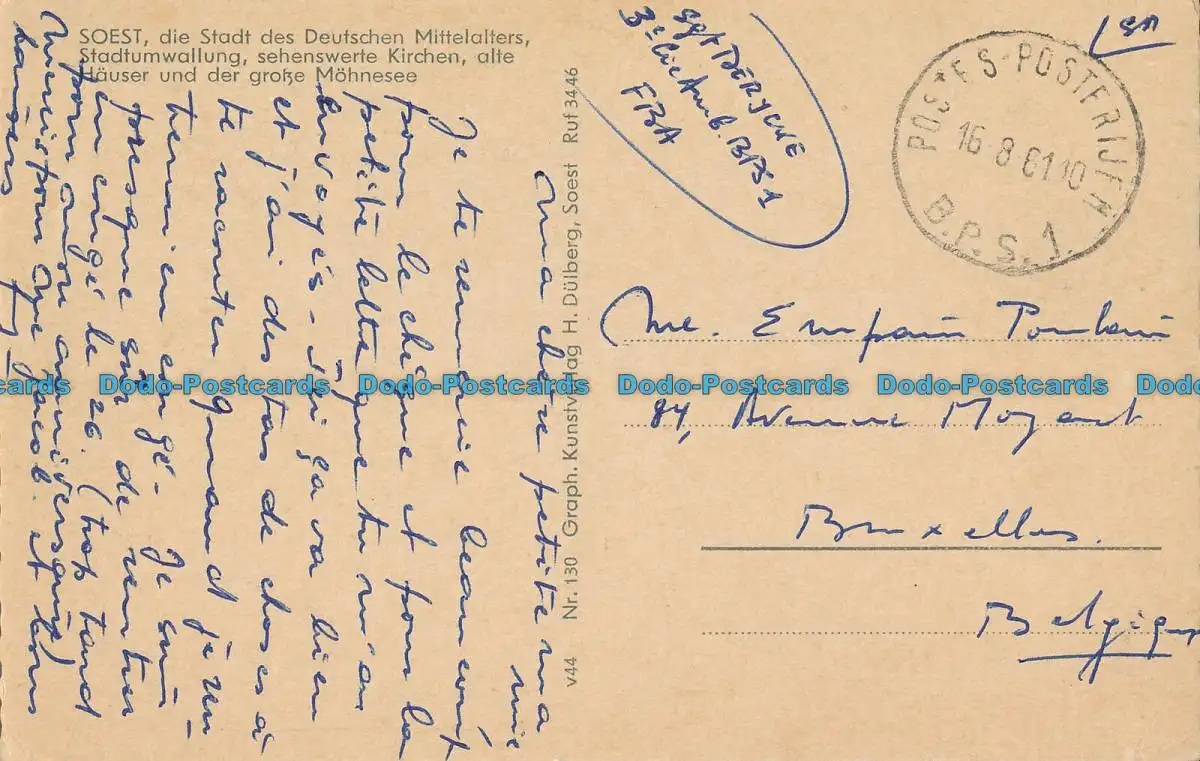 SOEST, die Stadt des Deutschen Mittelalters,
Stadtumwallung, sehenswerte Kirchen, alte
Häuser und der große Möhnesee
Ma chère petite ma
mie
Je te remercie beaucoup
pour le chèque et pour la
petite lettre que tu m'as
envoyés - Ici ça va bien
et j'ai des tas de choses à
te raconter quand je re
viens en congé - Je suis
presque sûr de rentrer
en congé le 26. (trop tard
pour mon anniversaire)
Merci pour Jacob. et bons
baisers
v44 Nr. 130 Graph. Kunstverlag H. Dülberg, Soest Ruf 3446
Sgt
3e Cie Amb. BPS 1
FBA
POSTES-POSTERIJEN
16 8 61 10
B.P.S. 1.
Me. Empain Poulain
84, Avenue Mozart
Bruxelles.
Belgique
Dodo-Postcards Dodo-Postcards Dodo-Postcards Dodo-Postcards